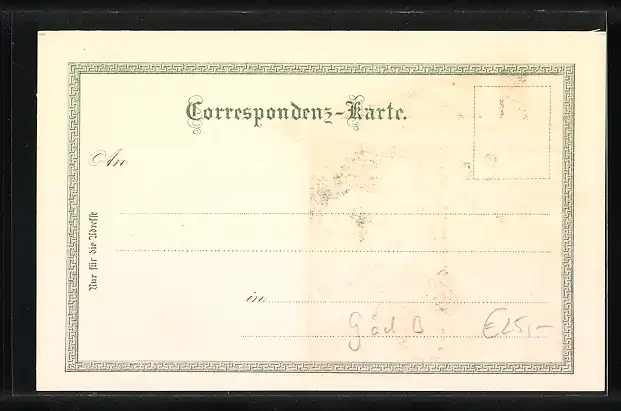 Correspondenz-Karte.
An
Nur für die Adresse
in
€25,-